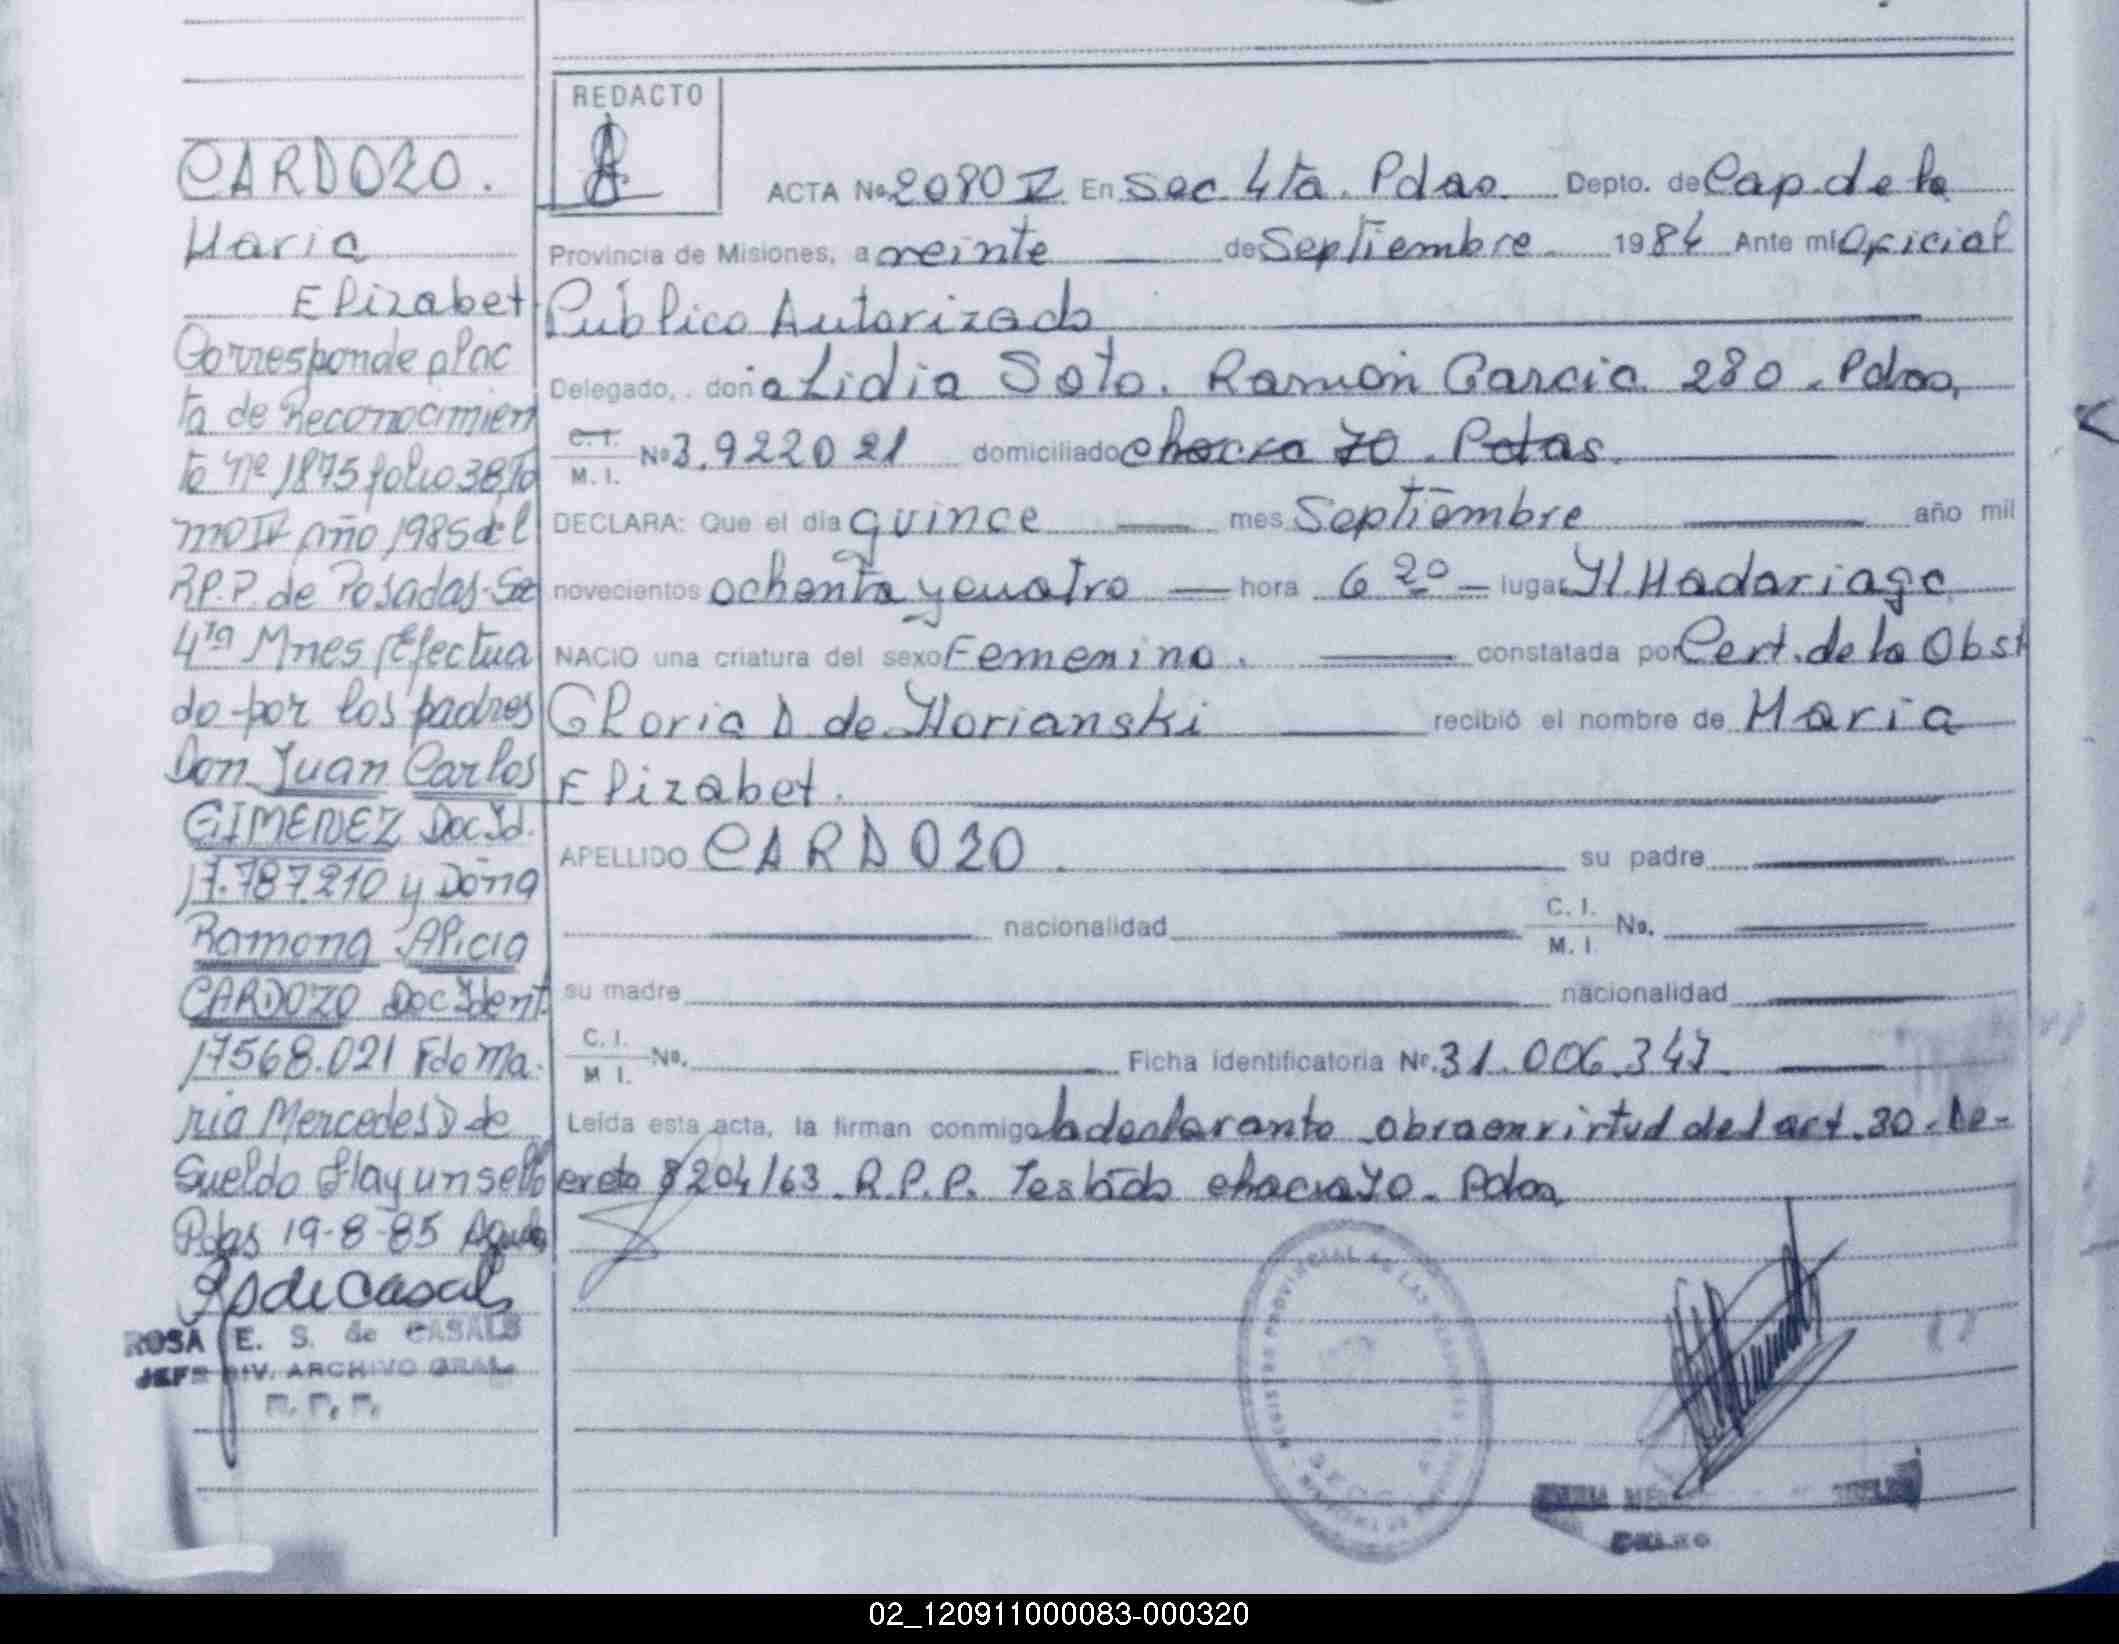 CARDOZO.
Maria
Elizabet
Corresponde al ac
ta de Reconocimien
to Nº 1875 folio 38 To
mo IV Año 1985 del
R.P.P. de Posadas-Sec
4ta Mnes Efectua
do por los padres
Don Juan Carlos
GIMENEZ Doc Id.
17.787.210 y Doña
Ramona Alicia
CARDOZO Doc Ident.
17568.021 Fdo Ma.
ria Mercedes D de
Sueldo Hay un sello
Pdas 19-8-85
ROSA E. S. de CASALS
JEFE DIV. ARCHIVO GRAL.
R. P. P.
REDACTO
ACTA Nº 2080 V En Sec 4ta. Pdas. Depto. de Cap. de la
Provincia de Misiones, a veinte de Septiembre. 1984 Ante mi Oficial
Público Autorizado
Delegado, . don a Lidia Soto. Ramón Garcia 280. Pdas,
C. I.
M. I. Nº 3.922021 domiciliado chacra 70. Pdas.
DECLARA: Que el día quince mes Septiembre año mil
novecientos ochenta y cuatro hora 6 20 lugar H. Madariaga
NACIO una criatura del sexo Femenino. constatada por Cert. de la Obst
Gloria D de Horianski recibió el nombre de Maria
Elizabet.
APELLIDO CARDOZO su padre
nacionalidad C. I.
M. I. No.
su madre nacionalidad
C. I.
M I. No. Ficha identificatoria Nº. 31.006.347
Leída esta acta, la firman conmigo la declarante obra en virtud del art. 30. De-
creto 8204/63. R.P.P. Testado chacra 70. Pdas
02_120911000083-000320